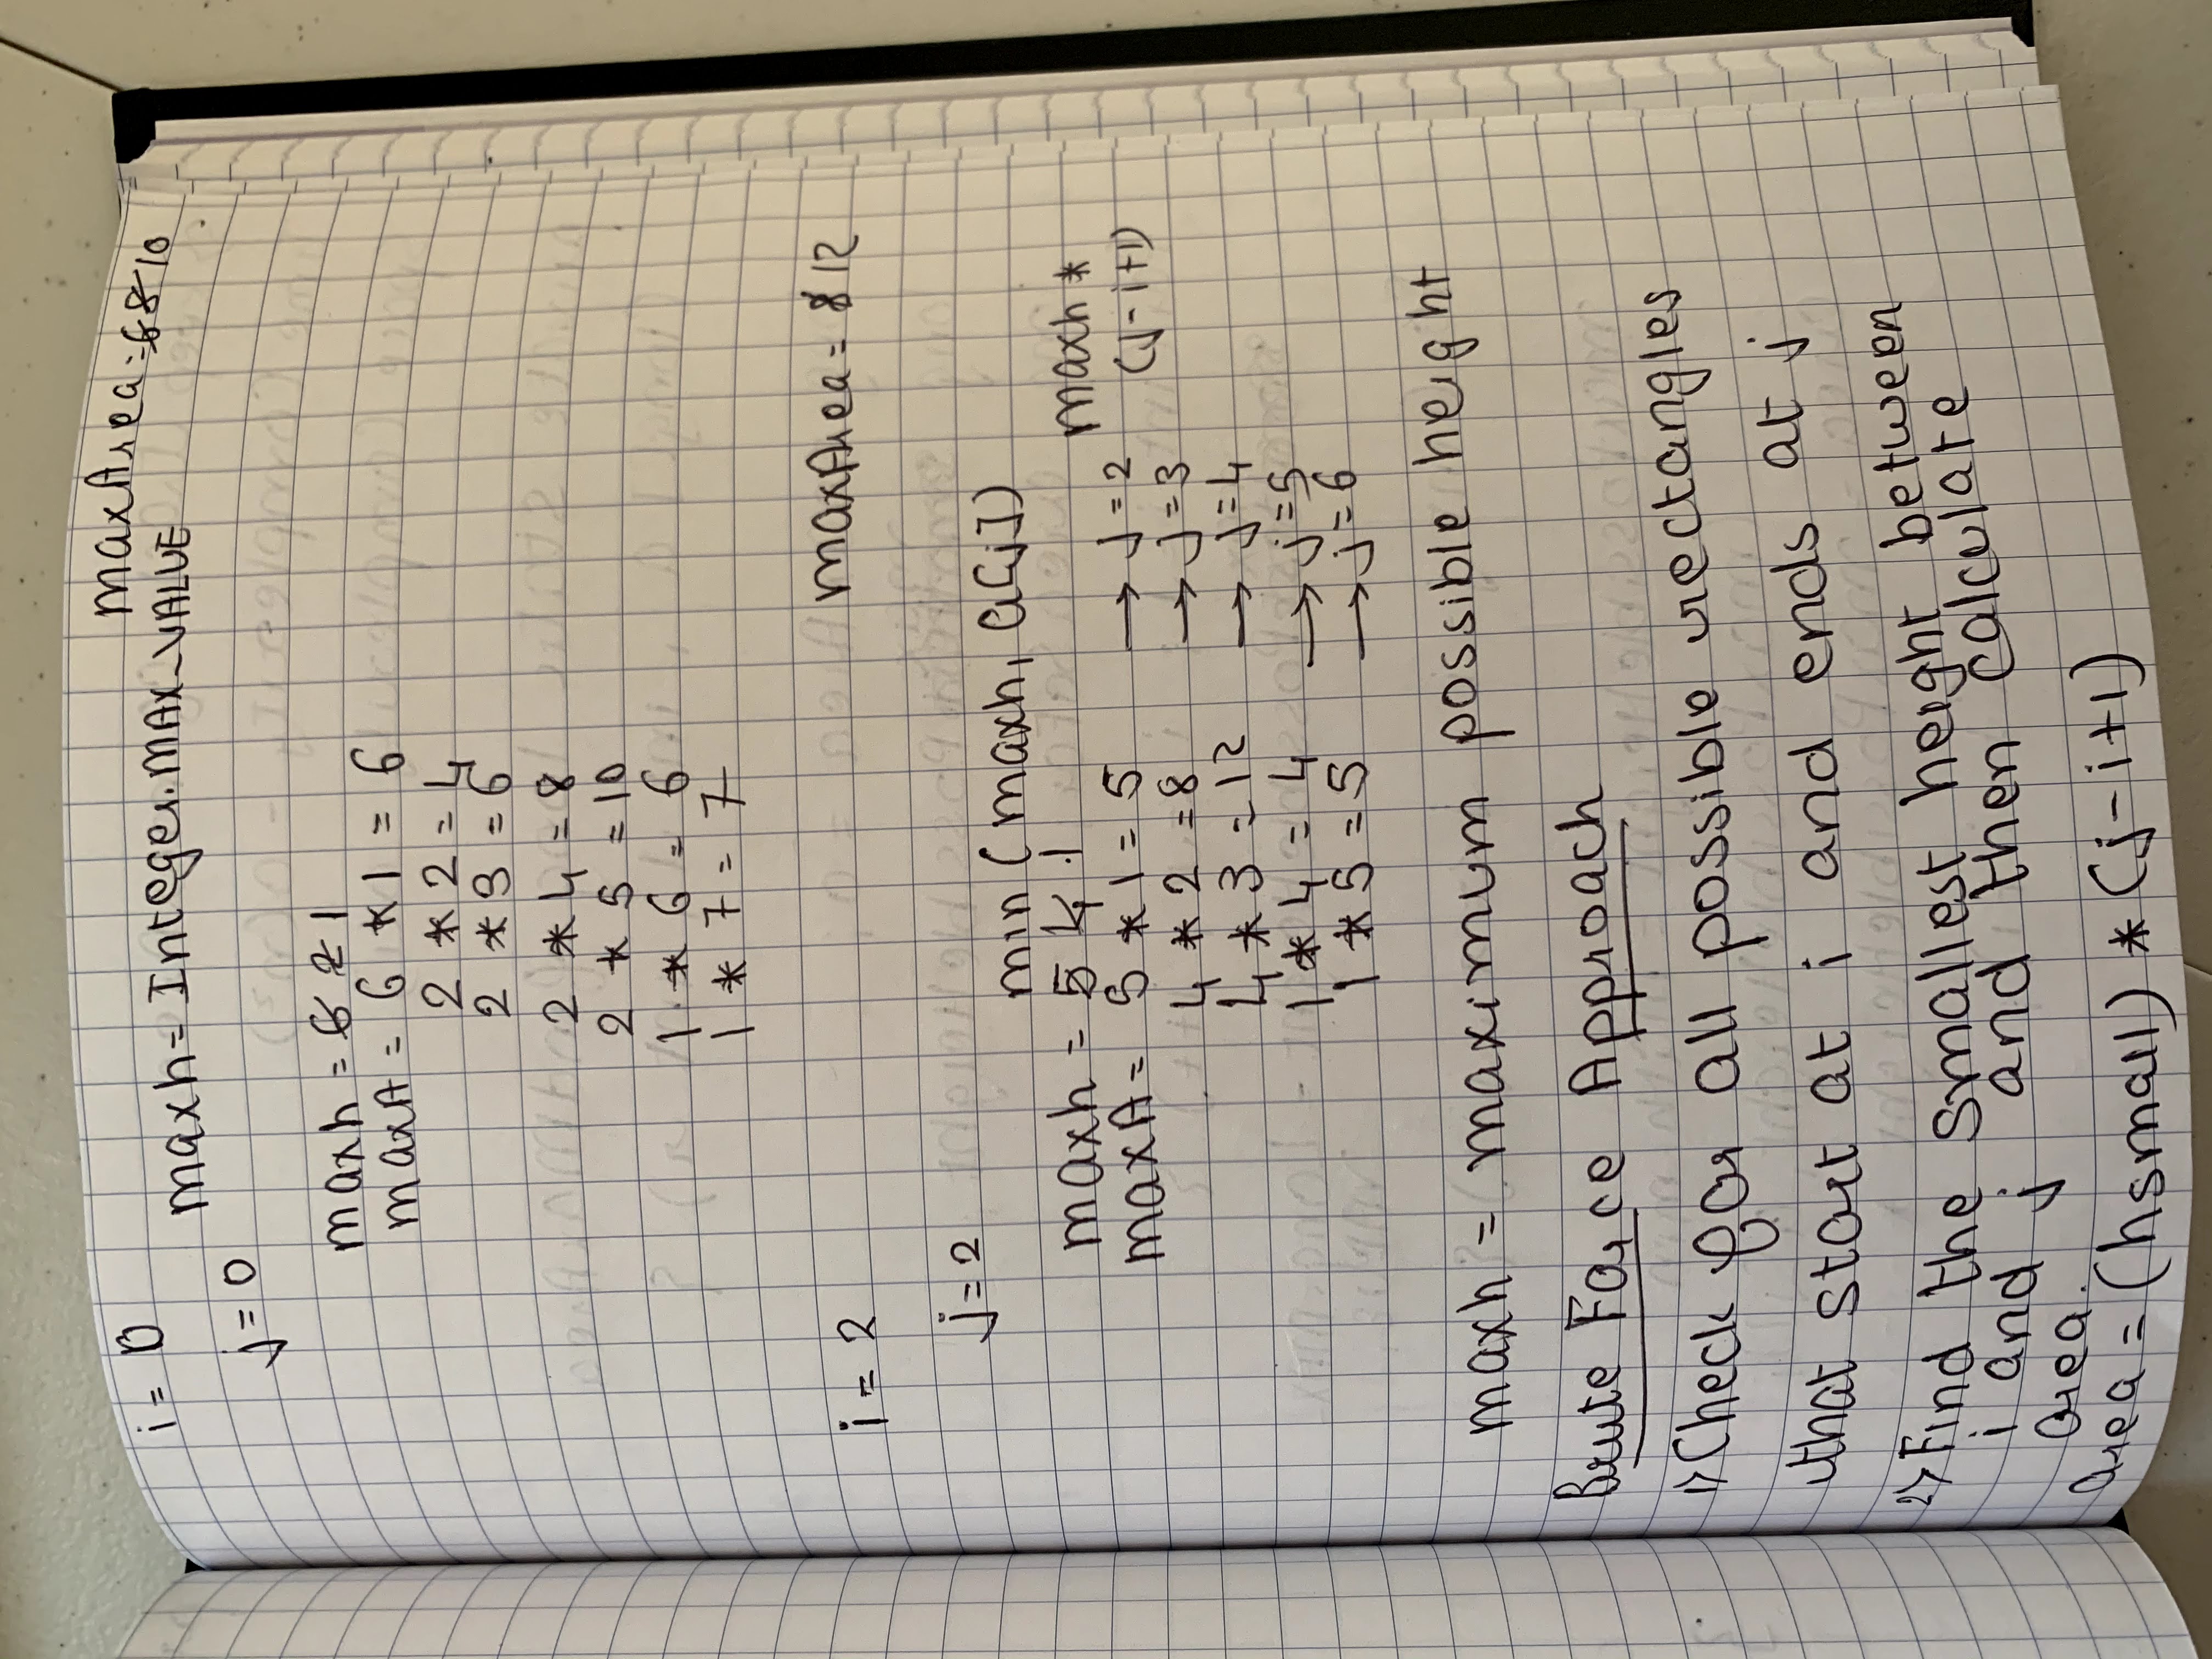 maxArea = 6 8 10
i = 0
maxh = Integer.MAX_VALUE
j = 0
maxh = 6 2 1
maxA = 6 * 1 = 6
2 * 2 = 4
2 * 3 = 6
2 * 4 = 8
2 * 5 = 10
1 * 6 = 6
1 * 7 = 7
maxArea = 8 12
i = 2
j = 2
min (maxh, a[j])
maxh = 5 4 1
maxh *
(j-i+1)
maxA = 5 * 1 = 5 → j = 2
4 * 2 = 8 → j = 3
4 * 3 = 12 → j = 4
1 * 4 = 4 → j = 5
1 * 5 = 5 → j = 6
maxh = maximum possible height
Brute Force Approach
1) Check for all possible rectangles
that start at i and ends at j
2) Find the smallest height between
i and j and then calculate
area.
Area = (hsmall) * (j-i+1)